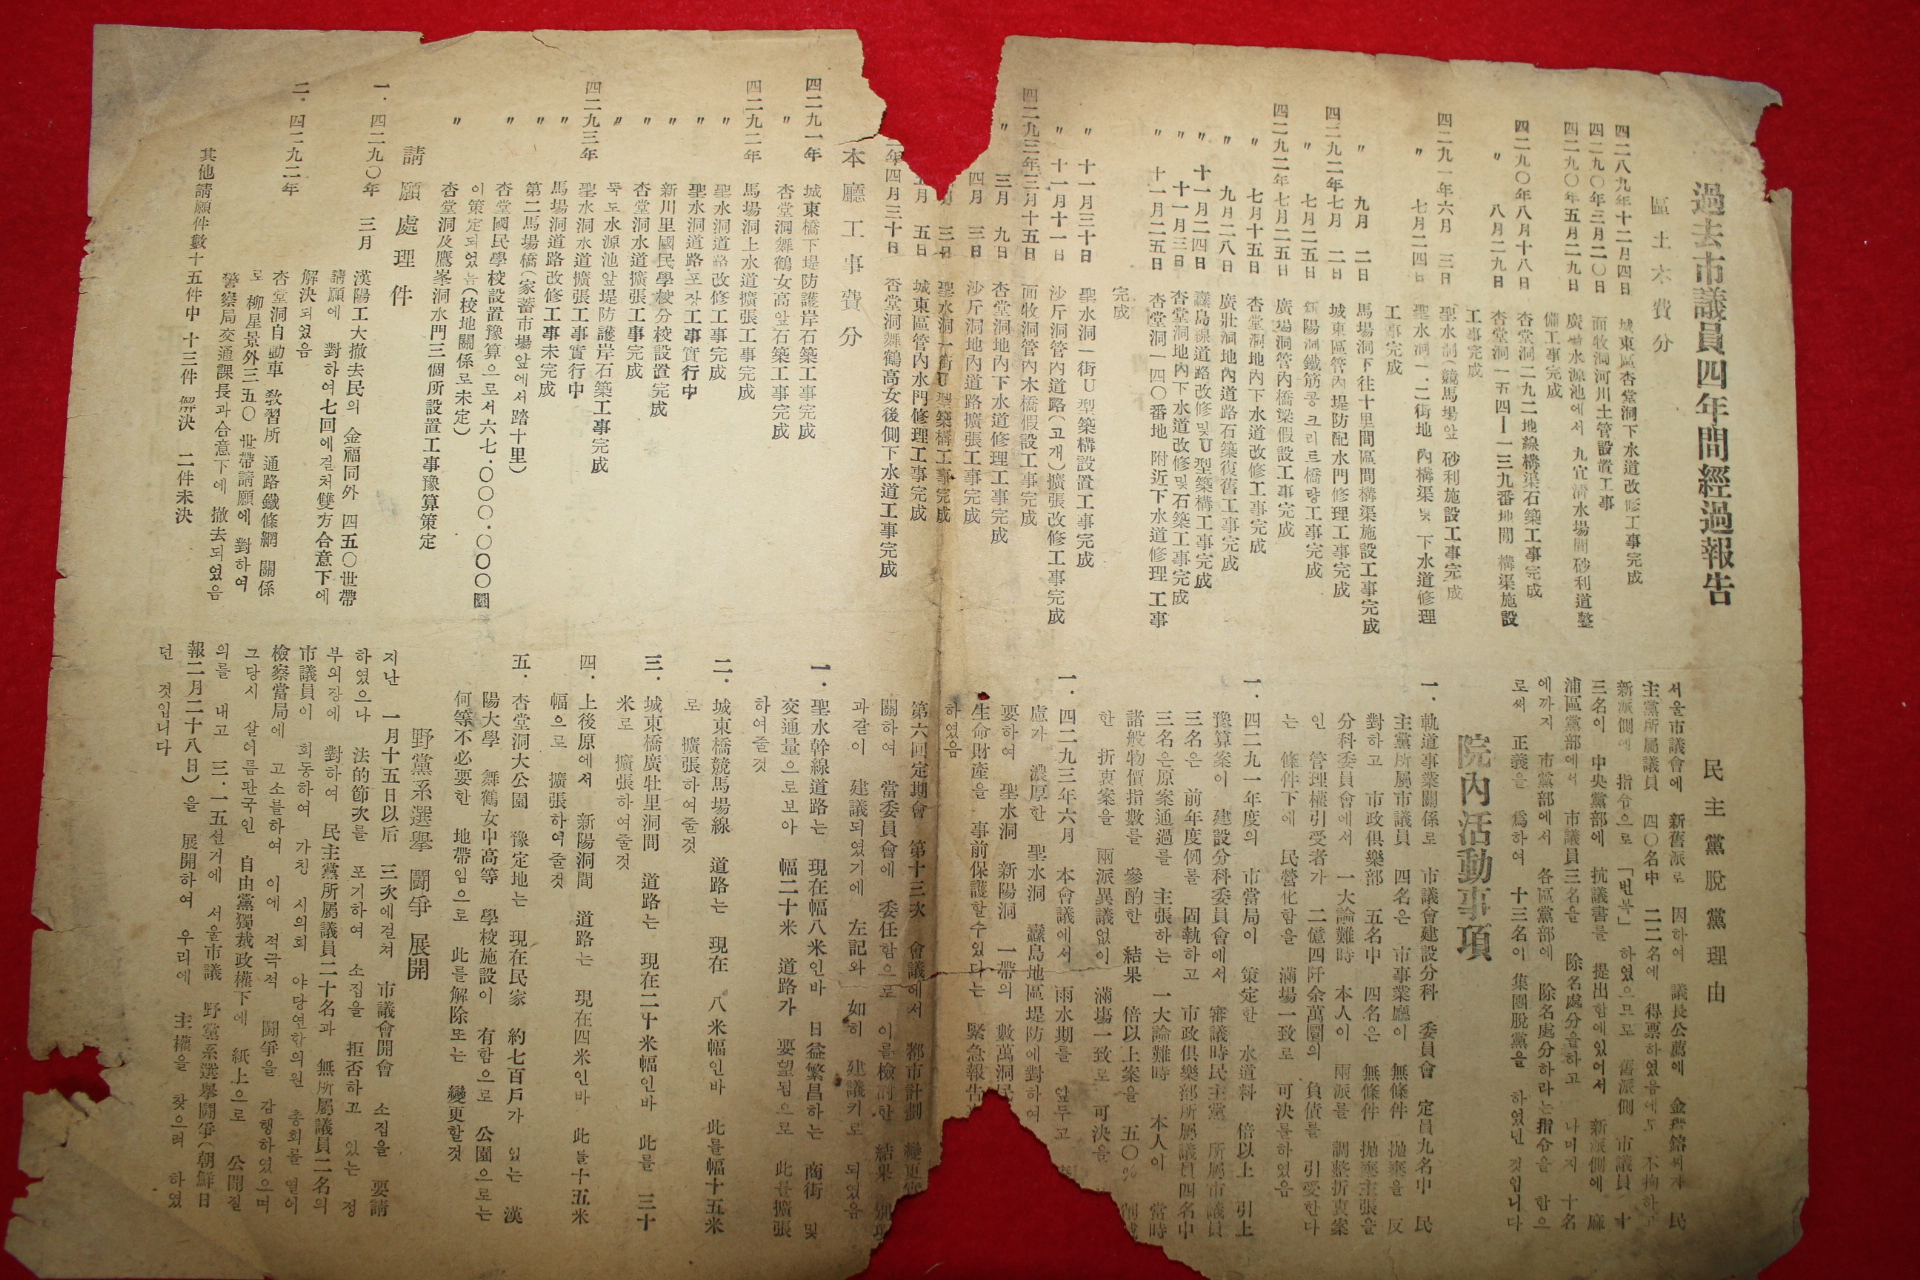 過去市議員四年間經過報告
區土木費分
四二八九年十二月四日 城東區杏堂洞下水道改修工事完成
四二九〇年三月二〇日 面牧洞河川土管設置工事
四二九〇年五月二九日 廣場水源池에서 九宜淸水場間砂利道整
備工事完成
四二九〇年八月十八日 杏堂洞二九二地線構渠石築工事完成
〃 八月二九日 杏堂洞一五四—一三九番地間 構渠施設
工事完成
四二九一年六月 三日 聖水洞(競馬場앞 砂利施設工事完成
〃 七月二四日 聖水洞一.二街地內構渠및 下水道修理
工事完成
〃 九月 二日 馬場洞下往十里間區間構渠施設工事完成
四二九二年七月 一日 城東區管內堤防配水門修理工事完成
〃 七月二五日 新陽洞鐵筋콩크리트橋량工事完成
四二九二年七月二五日 廣場洞管內橋梁假設工事完成
〃 七月十五日 杏堂洞地內下水道改修工事完成
〃 九月二八日 廣壯洞地內道路石築復舊工事完成
〃 十一月二四日 纛島線道路改修및U型築構工事完成
〃 十一月三日 杏堂洞地內下水道改修및石築工事完成
〃 十一月二五日 杏堂洞一四〇番地附近下水道修理工事
完成
〃 十一月三十日 聖水洞一街U型築構設置工事完成
〃 十一月十一日 沙斤洞管內道路(고개)擴張改修工事完成
四二九三年三月十五日 面牧洞管內木橋假設工事完成
〃 三月 九日 杏堂洞地內下水道修理工事完成
四月 三日 沙斤洞地內道路擴張工事完成
月 三日 聖水洞一街U型築構工事完成
五月 五日 城東區管內水門修理工事完成
年四月三十日 杏堂洞舞鶴高女後側下水道工事完成
本廳工事費分
四二九一年 城東橋下堤防護岸石築工事完成
〃 杏堂洞舞鶴女高앞石築工事完成
四二九二年 馬場洞上水道擴張工事完成
〃 聖水洞道路改修工事完成
〃 聖水洞道路포장工事實行中
〃 新川里國民學校分校設置完成
〃 杏堂洞水道擴張工事完成
〃 뚝도水源池앞堤防護岸石築工事完成
四二九三年 聖水洞水道擴張工事實行中
〃 馬場洞道路改修工事未完成
〃 第二馬場橋(家蓄市場앞에서 踏十里)
〃 杏堂國民學校設置豫算으로서六七.〇〇〇.〇〇〇圜
이策定되였음(校地關係로未定)
〃 杏堂洞及鷹峯洞水門三個所設置工事豫算策定
請願處理件
一. 四二九〇年 三月 漢陽工大撤去民의 金福同外 四五〇世帶
請願에 對하여七回에걸처雙方合意下에
解決되였음
二. 四二九二年 杏堂洞自動車 敎習所 通路鐵條網 關係
로 柳星景外三五〇世帶請願에 對하여
警察局交通課長과合意下에 撤去되였음
其他請願件數十五件中 十三件 解決 二件未決
民主黨脫黨理由
서울市議會에 新舊派로 因하여 議長公薦에 金 씨가 民
主黨所屬議員 四〇名中 二二名에 得票하였음에도 不拘하고
新派側에 指令으로 「번복」하였으므로 舊派側 市議員 十
三名이 中央黨部에 抗議書를 提出함에있어서 新派側에 麻
浦區黨部에서 市議員三名을 除名處分을하고 나머지 十名
에까지 市黨部에서 各區黨部에 除名處分하라는指令을 함으
로써 正義을 爲하여 十三名이 集團脫黨을 하였던 것입니다
院內活動事項
一. 軌道事業關係로 市議會建設分科 委員會 定員九名中 民
主黨所屬市議員 四名은 市事業廳이 無條件 抛棄을 反
對하고 市政俱樂部 五名中 四名은 無條件 抛棄主張을
分科委員會에서 一大論難時 本人이 兩派를 調整折衷案
인 管理權引受者가 二億四阡余萬圜의 負債를 引受한다
는 條件下에 民營化함을 滿場一致로 可決를하였음
一. 四二九一年度의 市當局이 策定한 水道料 倍以上 引上
豫算案이 建設分科委員會에서 審議時民主黨 所屬市議員
三名은 前年度例를 固執하고 市政俱樂部所屬議員四名中
三名은原案通過를 主張하는 一大論難時 本人이 當時
諸般物價指數를 參酌한 結果 倍以上案을 五〇% 削減
한 折衷案을 兩派異議없이 滿場一致로 可決을
一. 四二九三年六月 本會議에서 雨水期를 앞두고
慮가 濃厚한 聖水洞 纛島地區堤防에對하여
要하여 聖水洞 新陽洞 一帶의 數萬洞民
生命財産을 事前保護할수있다는 緊急報告
하였음
第六回定期會 第十三次 會議에서 都市計劃 變更
關하여 當委員會에 委任함으로 이를檢討한 結果 別項
과같이 建議되였기에 左記와 如히 建議키로 되였음
一. 聖水幹線道路는 現在幅八米인바 日益繁昌하는 商街 및
交通量으로보아 幅二十米 道路가 要望됨으로 此를擴張
하여줄것
二. 城東橋競馬場線 道路는 現在 八米幅인바 此를幅十五米
로 擴張하여줄것
三. 城東橋廣壯里洞間 道路는 現在二十米幅인바 此를 三十
米로 擴張하여줄것
四. 上後原에서 新陽洞間 道路는 現在四米인바 此를十五米
幅으로 擴張하여줄것
五. 杏堂洞大公園 豫定地는 現在民家 約七百戶가 있는 漢
陽大學 舞鶴女中高等 學校施設이 有함으로 公園으로는
何等不必要한 地帶임으로 此를解除또는 變更할것
野黨系選擧 鬪爭 展開
지난 一月十五日以后 三次에걸쳐 市議會開會 소집을 要請
하였으나 法的節次를 포기하여 소집을 拒否하고 있는 정
부의장에 對하여 民主黨所屬議員二十名과 無所屬議員二名의
市議員이 회동하여 가칭 시의회 야당연합의원 총회를 열어
檢察當局에 고소를하여 이에 적극적 鬪爭을 감행하였으며
그당시 살어름판국인 自由黨獨裁政權下에 紙上으로 公開질
의를 내고 三.一五선거에 서울市議 野黨系選擧鬪爭(朝鮮日
報二月二十八日)을 展開하여 우리에 主權을 찾으려 하였
던 것입니다